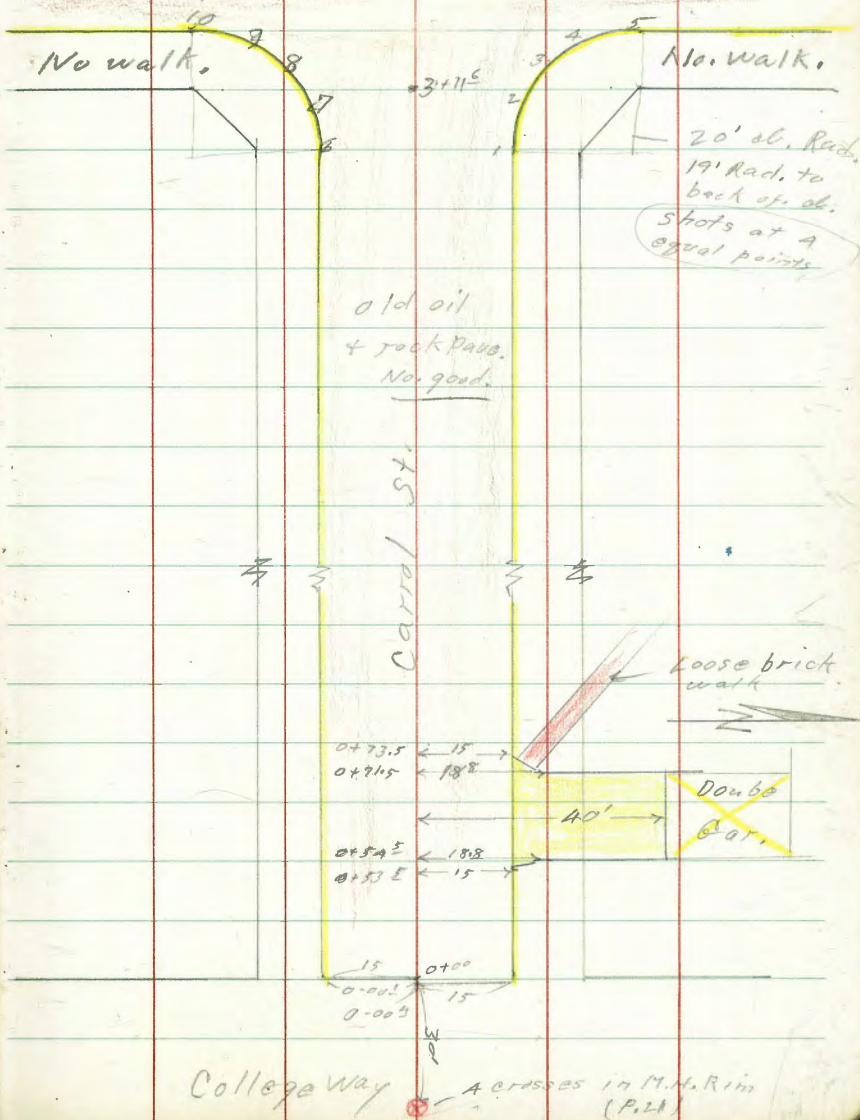 10
9
8
7
6
5
4
3
2
1
No walk.
No. walk.
3+11⁶
20' cb. Rad.
19' Rad. to
back of cb.
shots at 4
equal points
old oil
+ rock Pave.
No. good.
Carrol St.
Loose brick
walk
N
0+73.5 15
0+71.5 18⁸
Doube
Gar.
40'
0+54⁵ 18.8
0+53⁵ 15
15 0+00
15
30'
College Way
4 crosses in M.H. Rim